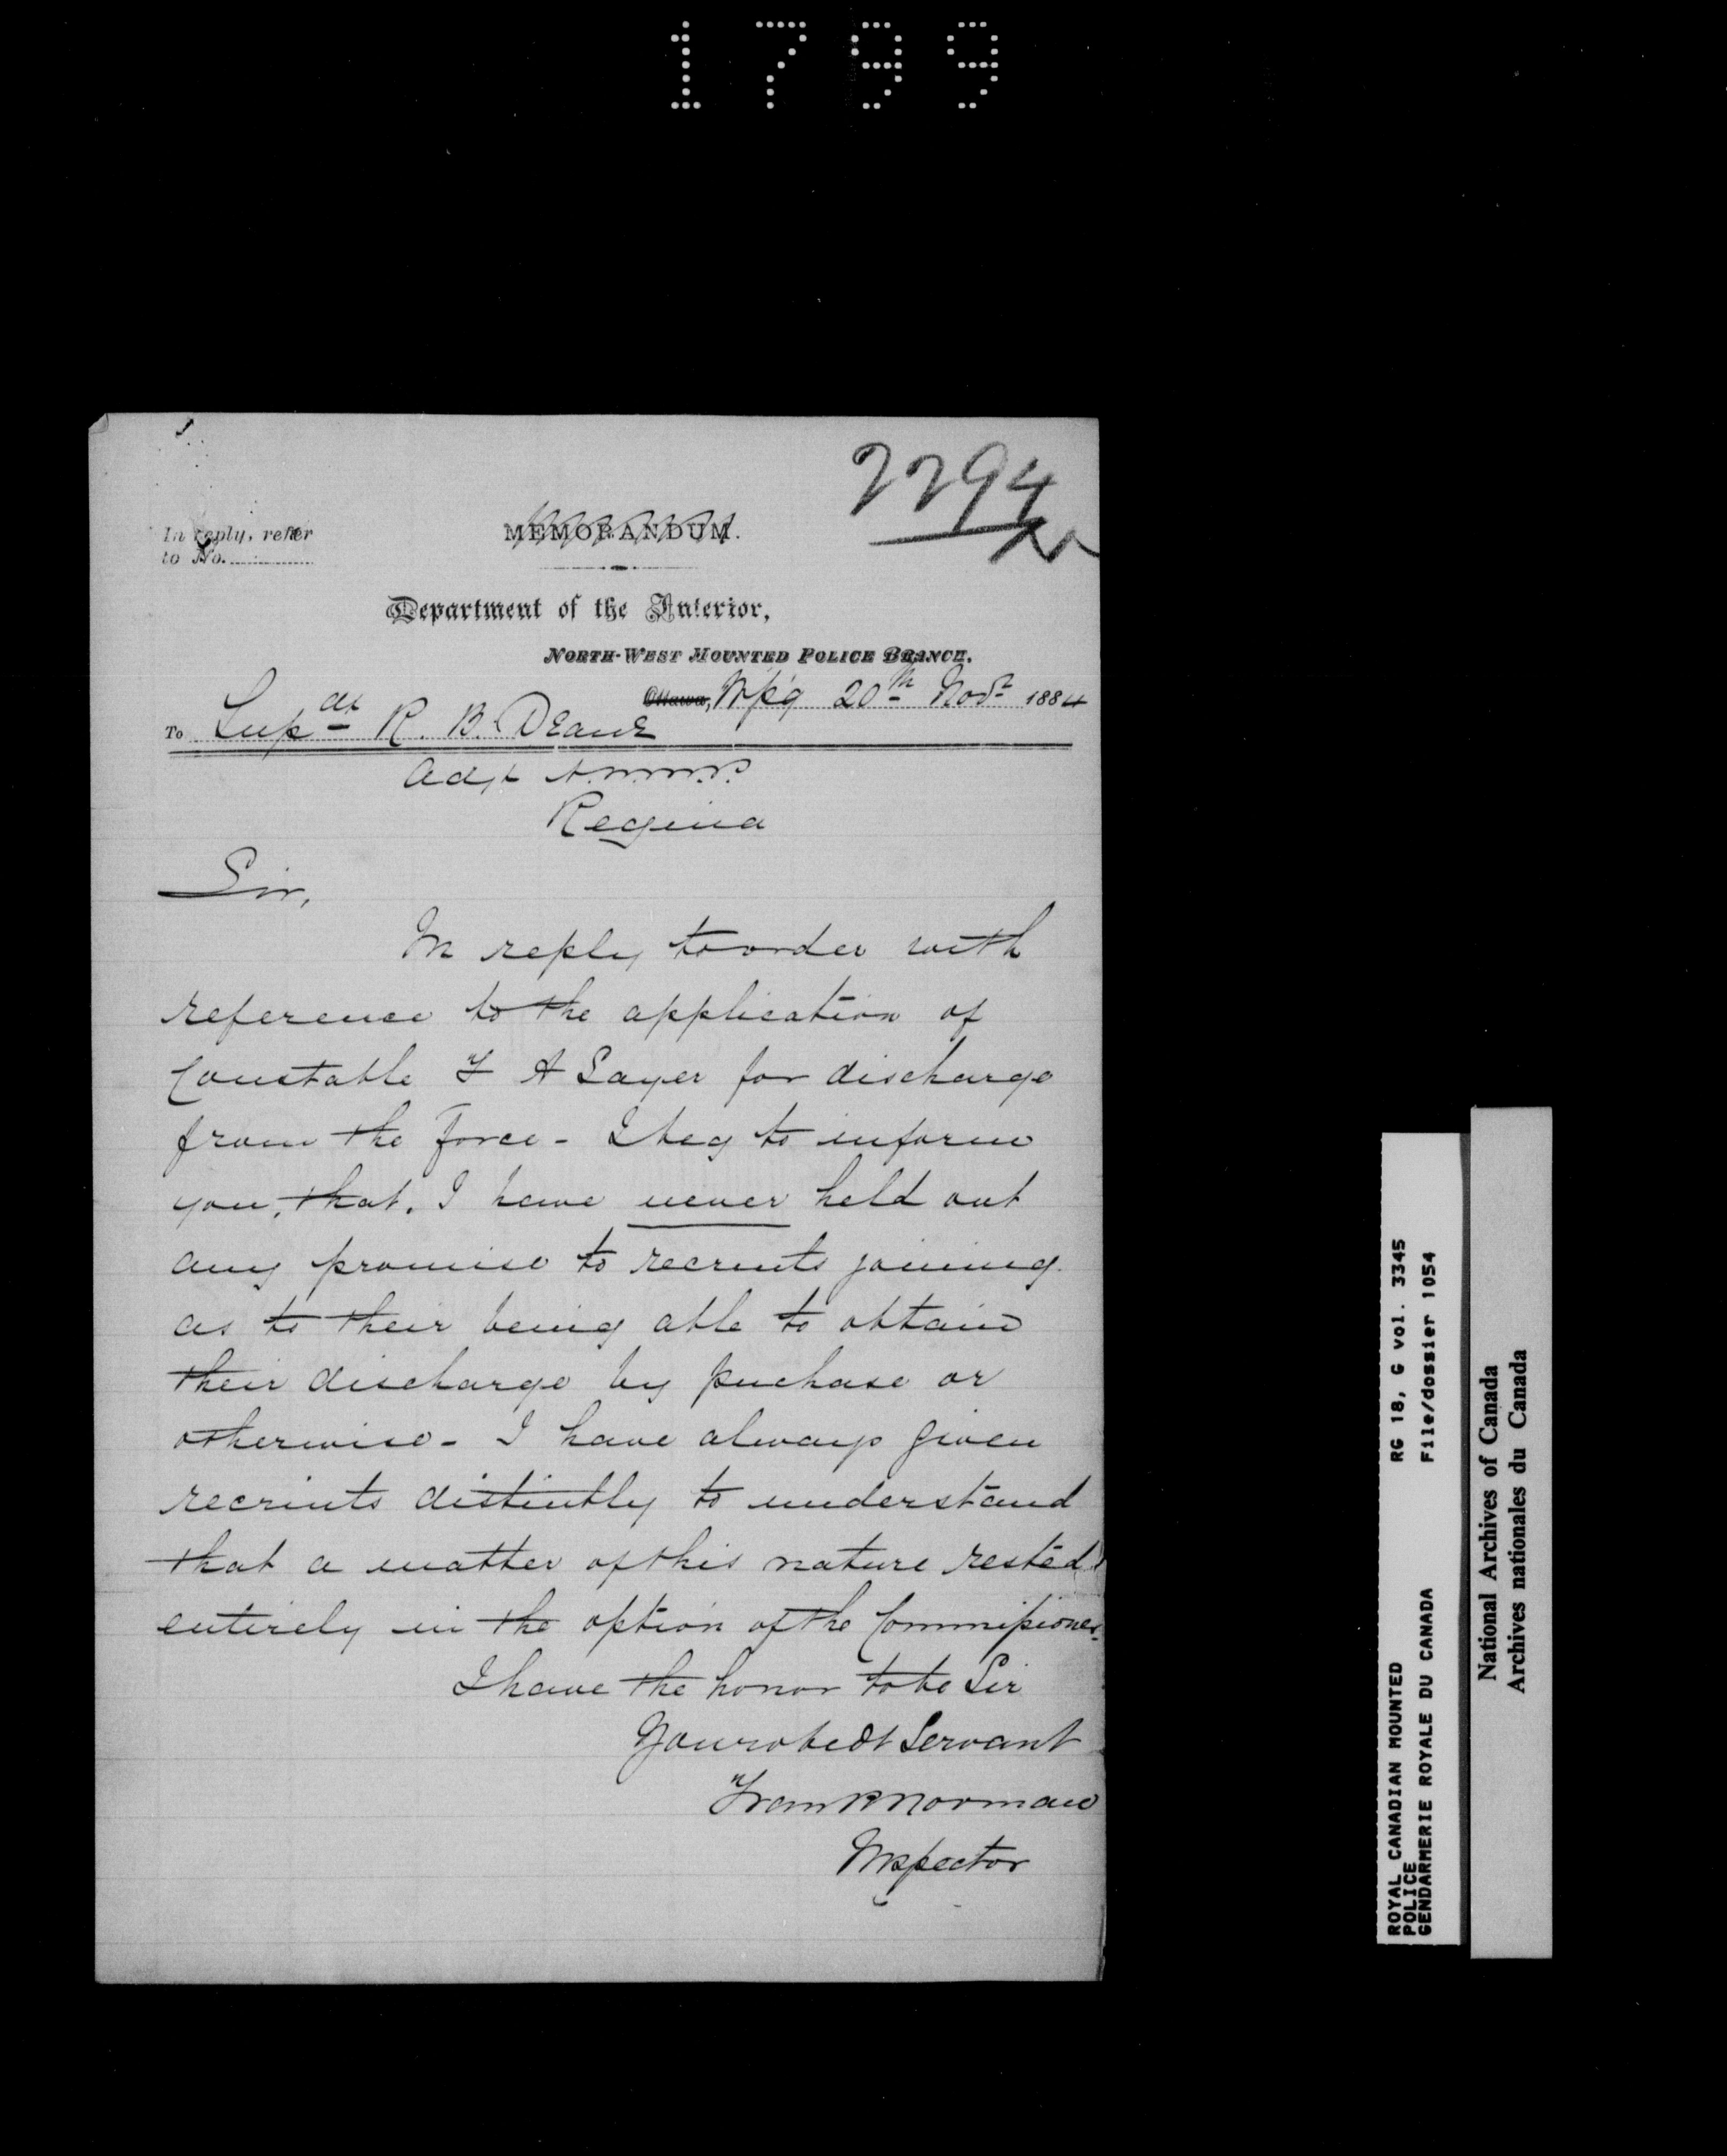 1799
2294
In reply, refer
to No.
MEMORANDUM.
Department of the Interior,
NORTH-WEST MOUNTED POLICE BRANCH.
Ottawa, Wpg 20th Novr 1884
To Supdt R. B. Deane
Adjt N.W.M.P.
Regina
Sir,
In reply to order with
reference to the application of
Constable F A Sayer for discharge
from the Force - I beg to inform
you, that, I have never held out
any promise to recruits joining
as to their being able to obtain
their discharge by puchase or
otherwise - I have always given
recruits distintly to understand
that a matter of this nature rested
entirely in the option of the Commissioner.
I have the honor to be Sir
Your obedt Servant
Frank Norman
Inspector
ROYAL CANADIAN MOUNTED RG 18, G vol. 3345
POLICE
GENDARMERIE ROYALE DU CANADA File/dossier 1054
National Archives of Canada
Archives nationales du Canada